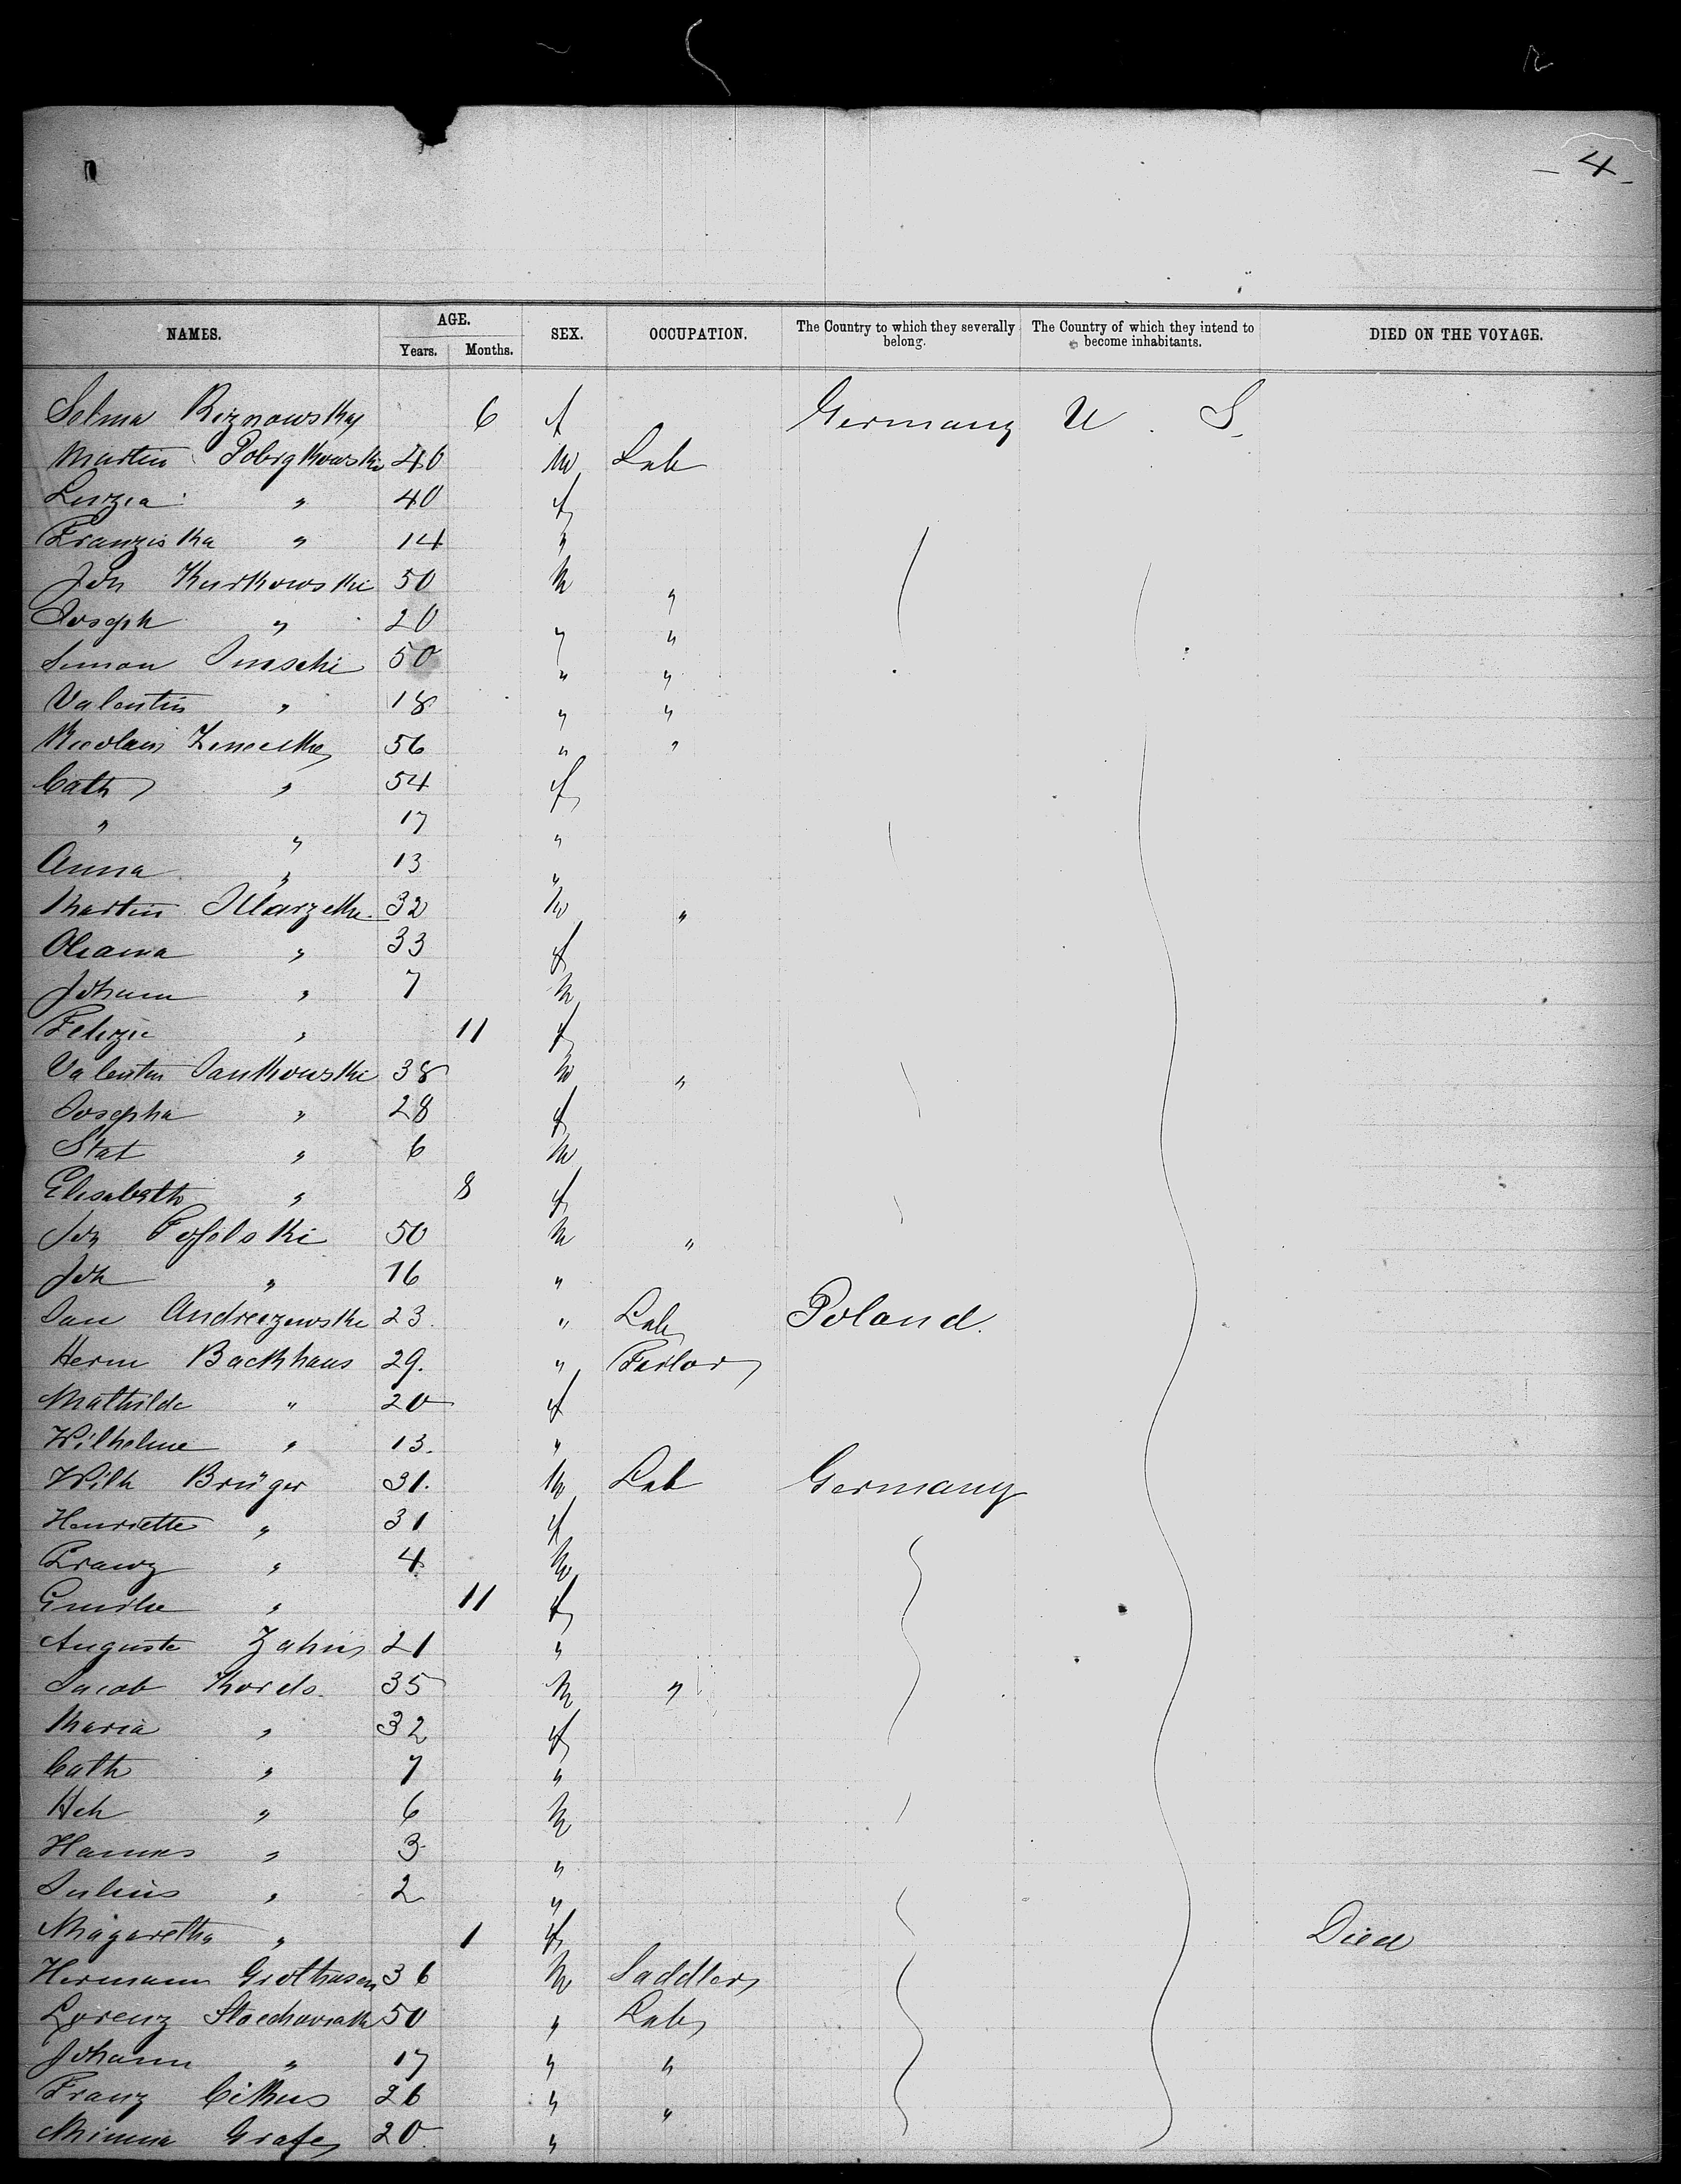 - 4 -
NAMES. AGE. SEX. OCCUPATION. The Country to which they severally belong. The Country of which they intend to become inhabitants. DIED ON THE VOYAGE.
Years. Months.
Selma Riznowsky 6 f Germany U. S.
Martin 40 m Lab
Luzia " 40 f
Franziska " 14 "
Joh Kurkowski 50 m "
Joseph " 20 " "
Simon 50 " "
Valentin " 18 " "
56 " "
Cath " 54 f
" " 17 "
Anna " 13 "
Martin 32 m "
" 33 f
Johann " 7 m
" 11 f
Valentin Jankowski 38 m "
Josepha " 28 f
Stat " 6 m
Elisabeth " 8 f
Joh 50 m "
Joh " 16 "
Jan 23. " Lab Poland.
Herm Backhaus 29. "
Mathilde " 20 f
Wilhelme " 13. "
Wilh Brüger 31. m Lab Germany
Henriette " 31 f
Franz " 4 m
Emilie " 11 f
Auguste Zahn 21 "
Jacob Kords. 35 m "
Maria " 32 f
Cath " 7 "
Hch " 6 m
Hannes " 3 "
Julius " 2 "
Magaretha " 1 f Died
Hermann Grothusen 36 m Saddler
Lorenz 50 " Lab
Johann " 17 " "
Franz 26 " "
Minna Grafe 20. "